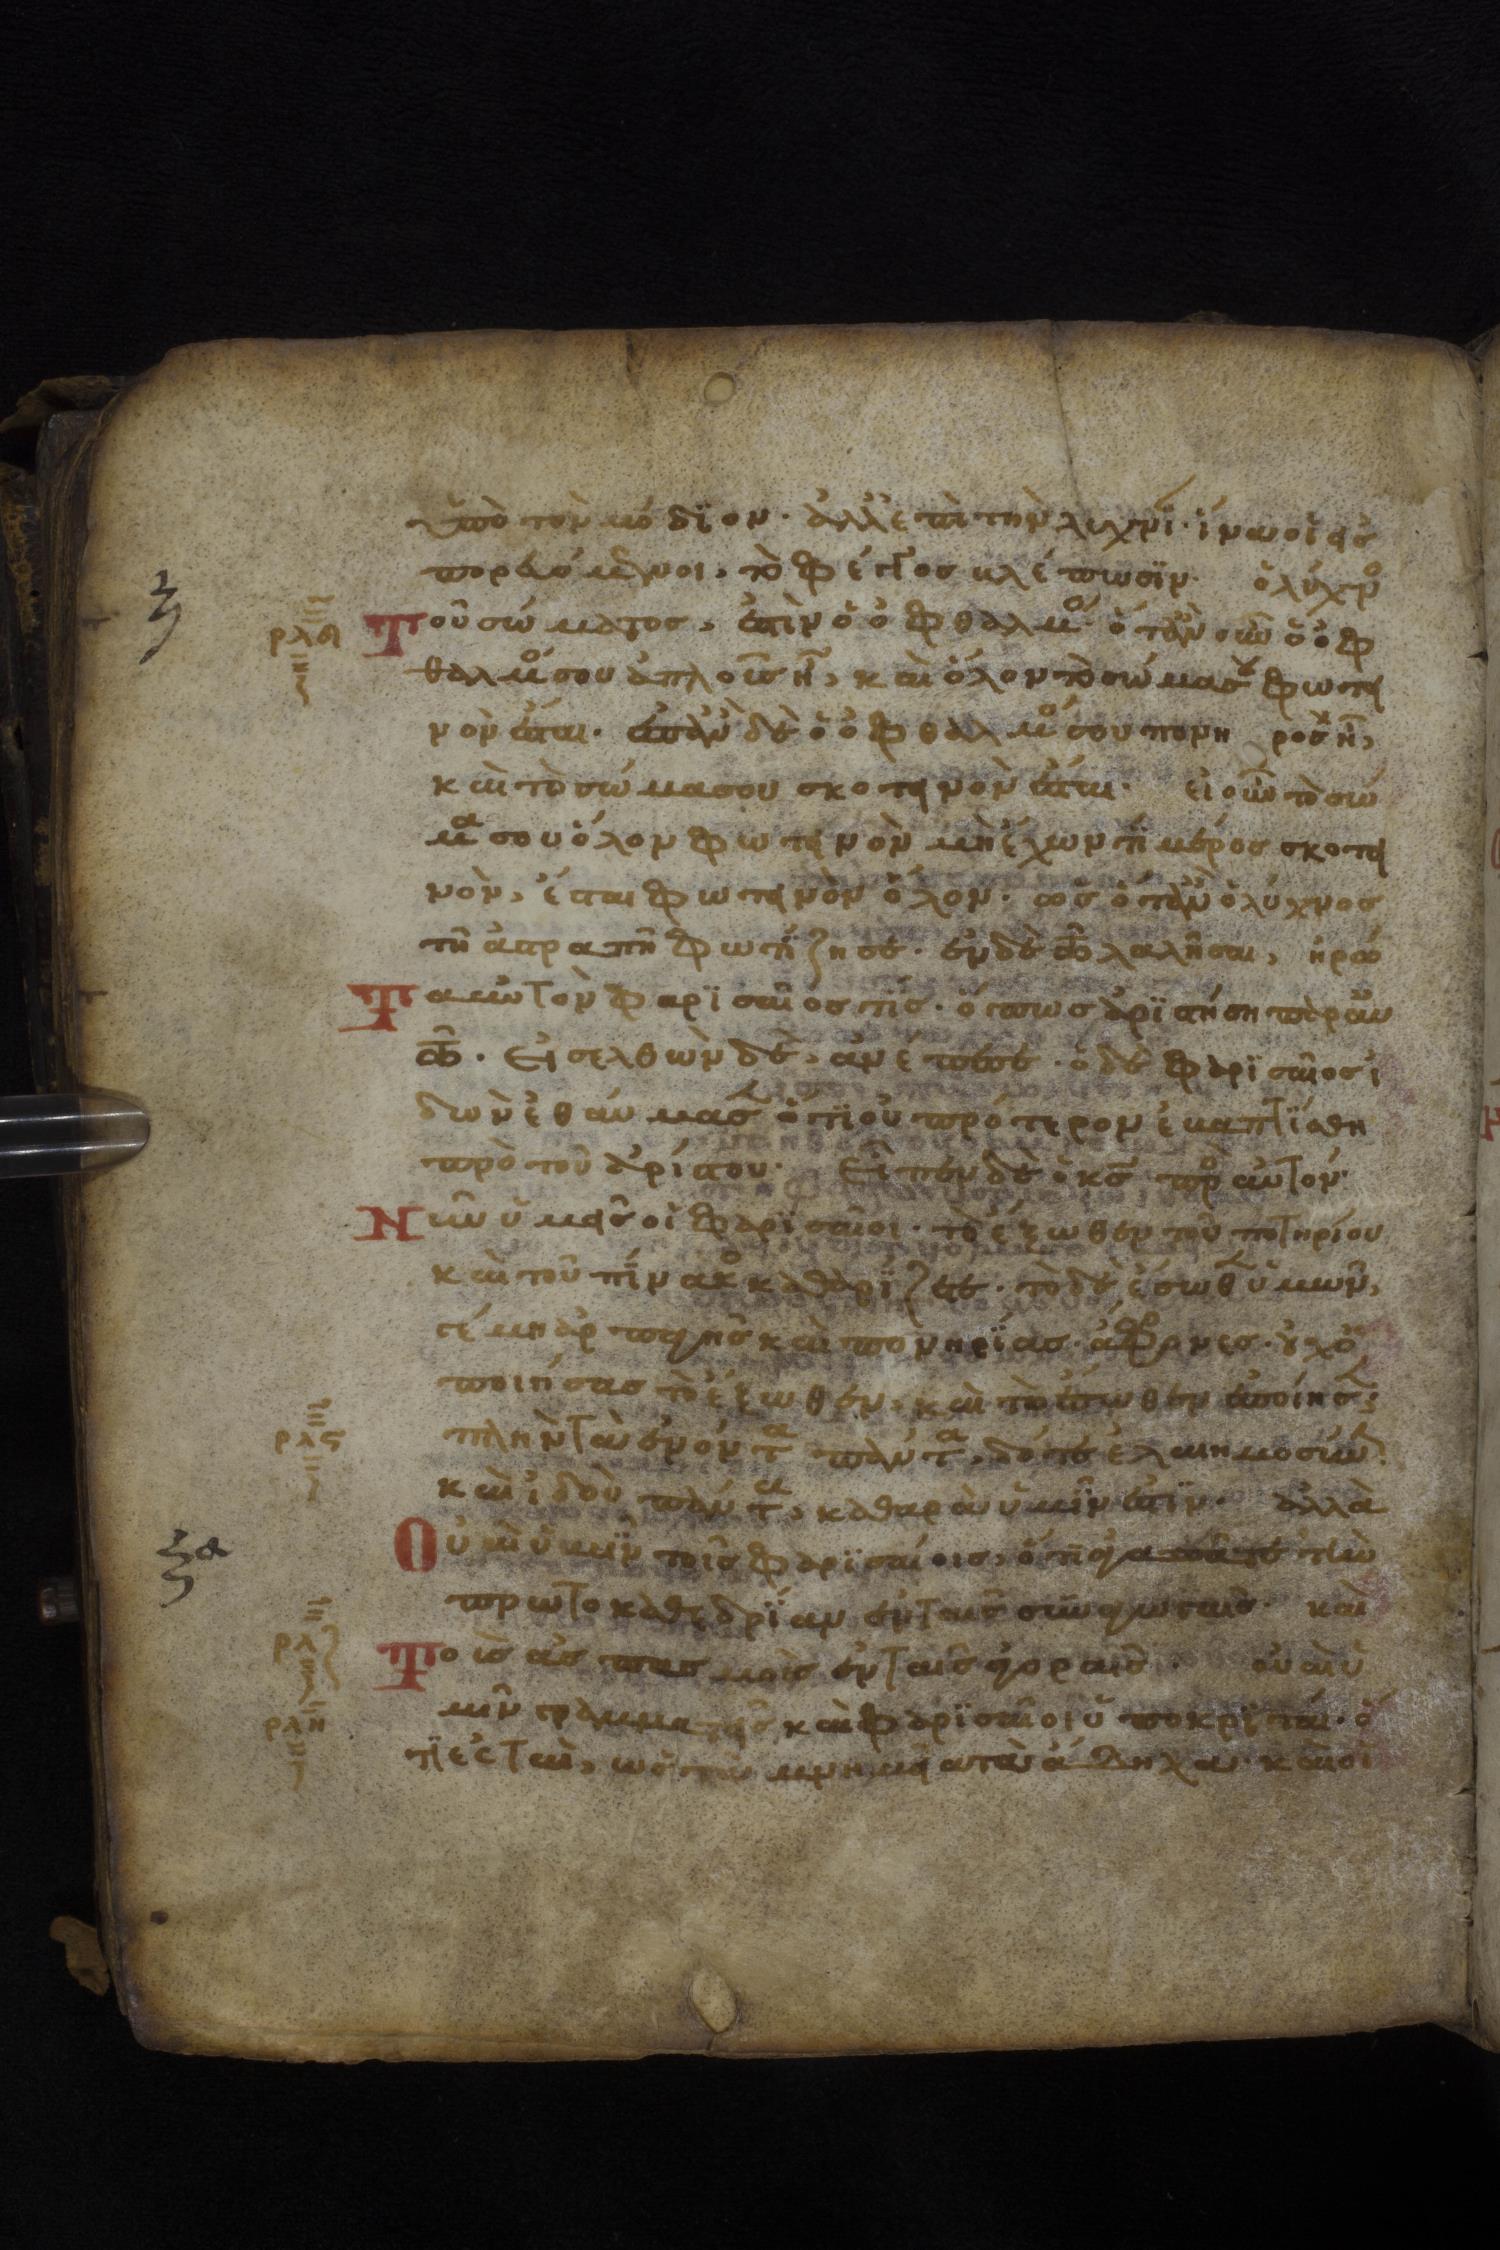 ὑπὸ τὸν μόδϊον· ἀλλ' ἐπὶ τὴν λυχνΐ· ἵνα οἱ εἰσ
πορευόμενοι, τὸ φέγγος βλέπωσϊν· ὁ λύχνο
ξ
ρλβ Τοῦ σώματος, ἐστὶν ὁ ὀφθαλμό· ὅταν οὖν ὁ ὀφ
θαλμό σου ἁπλοῦς ἦ, καὶ ὅλον τὸ σώμα σου φωτει
νὸν ἔσται· ἐπὰν δὲ ὁ ὀφθαλμό σου πονηρὸς ἦ,
καὶ τὸ σώμα σου σκοτεινὸν ἔσται· εἰ οὖν τὸ σώ
μα σου ὅλον φωτεινὸν μὴ ἔχων τϊ μέρος σκοτει
νὸν, ἔσται φωτεινὸν ὅλον· ὡς ὅταν ὁ λύχνος
τῆ ἀστραπῆ φωτίζη σε· ἐν δὲ τῶ λαλῆσαι, ἠρώ
Τα αὐτὸν φαρϊσαῖος τϊς· ὅπως ἀρϊστήση παρ αὐ
τῶ· Εἰσελθὼν δὲ, ἀνέπεσε· ὁ δὲ φαρϊσαῖος ἰ
δὼν ἐθαύμασε ὅτϊ οὐ πρότερον ἐβαπτΐσθη
πρὸ τοῦ ἀρίστου· Εἶπεν δὲ ὁ κς προ αὐτόν·
Νῦν ὑμεῖς οἱ φαρϊσαῖοι· τὸ ἔξωθεν τοῦ ποτηρίου
καὶ τοῦ πΐνακο καθαρΐζετε· τὸ δὲ ἔσωθεν ὑμῶν,
γέμη ἁρπαγῆς καὶ πονηρΐας· ἄφρονες· οὐχ ὁ
ποιήσας τὸ ἔξωθεν, καὶ τὸ ἔσωθεν ἐποίησε;
ρλς πλὴν τὰ ἐνόντα πάντα, δότε ἐλαιημοσύν
καὶ ἰδοὺ πάντα, καθαρὰ ὑμῖν ἐστϊν· ἀλλὰ
ξα Οὐαὶ ὑμῖν τοῖς φαρϊσαίοις, ὅτϊ ἀγαπᾶτε τὴν
πρωτοκαθεδρΐαν ἐν ταῖς συναγωγαῖς· καὶ
ρλζ Τοὺς ἀσπασμοὺς ἐν ταῖς ἀγοραῖς· οὐαὶ ὑ
ρλη μῖν γραμματεῖς καὶ φαρϊσαῖοι ὑποκρϊταί· ὅ
τϊ ἐσταὶ, ὡς τὰ μνημεῖα τὰ ἄδηλα· καὶ οἱ